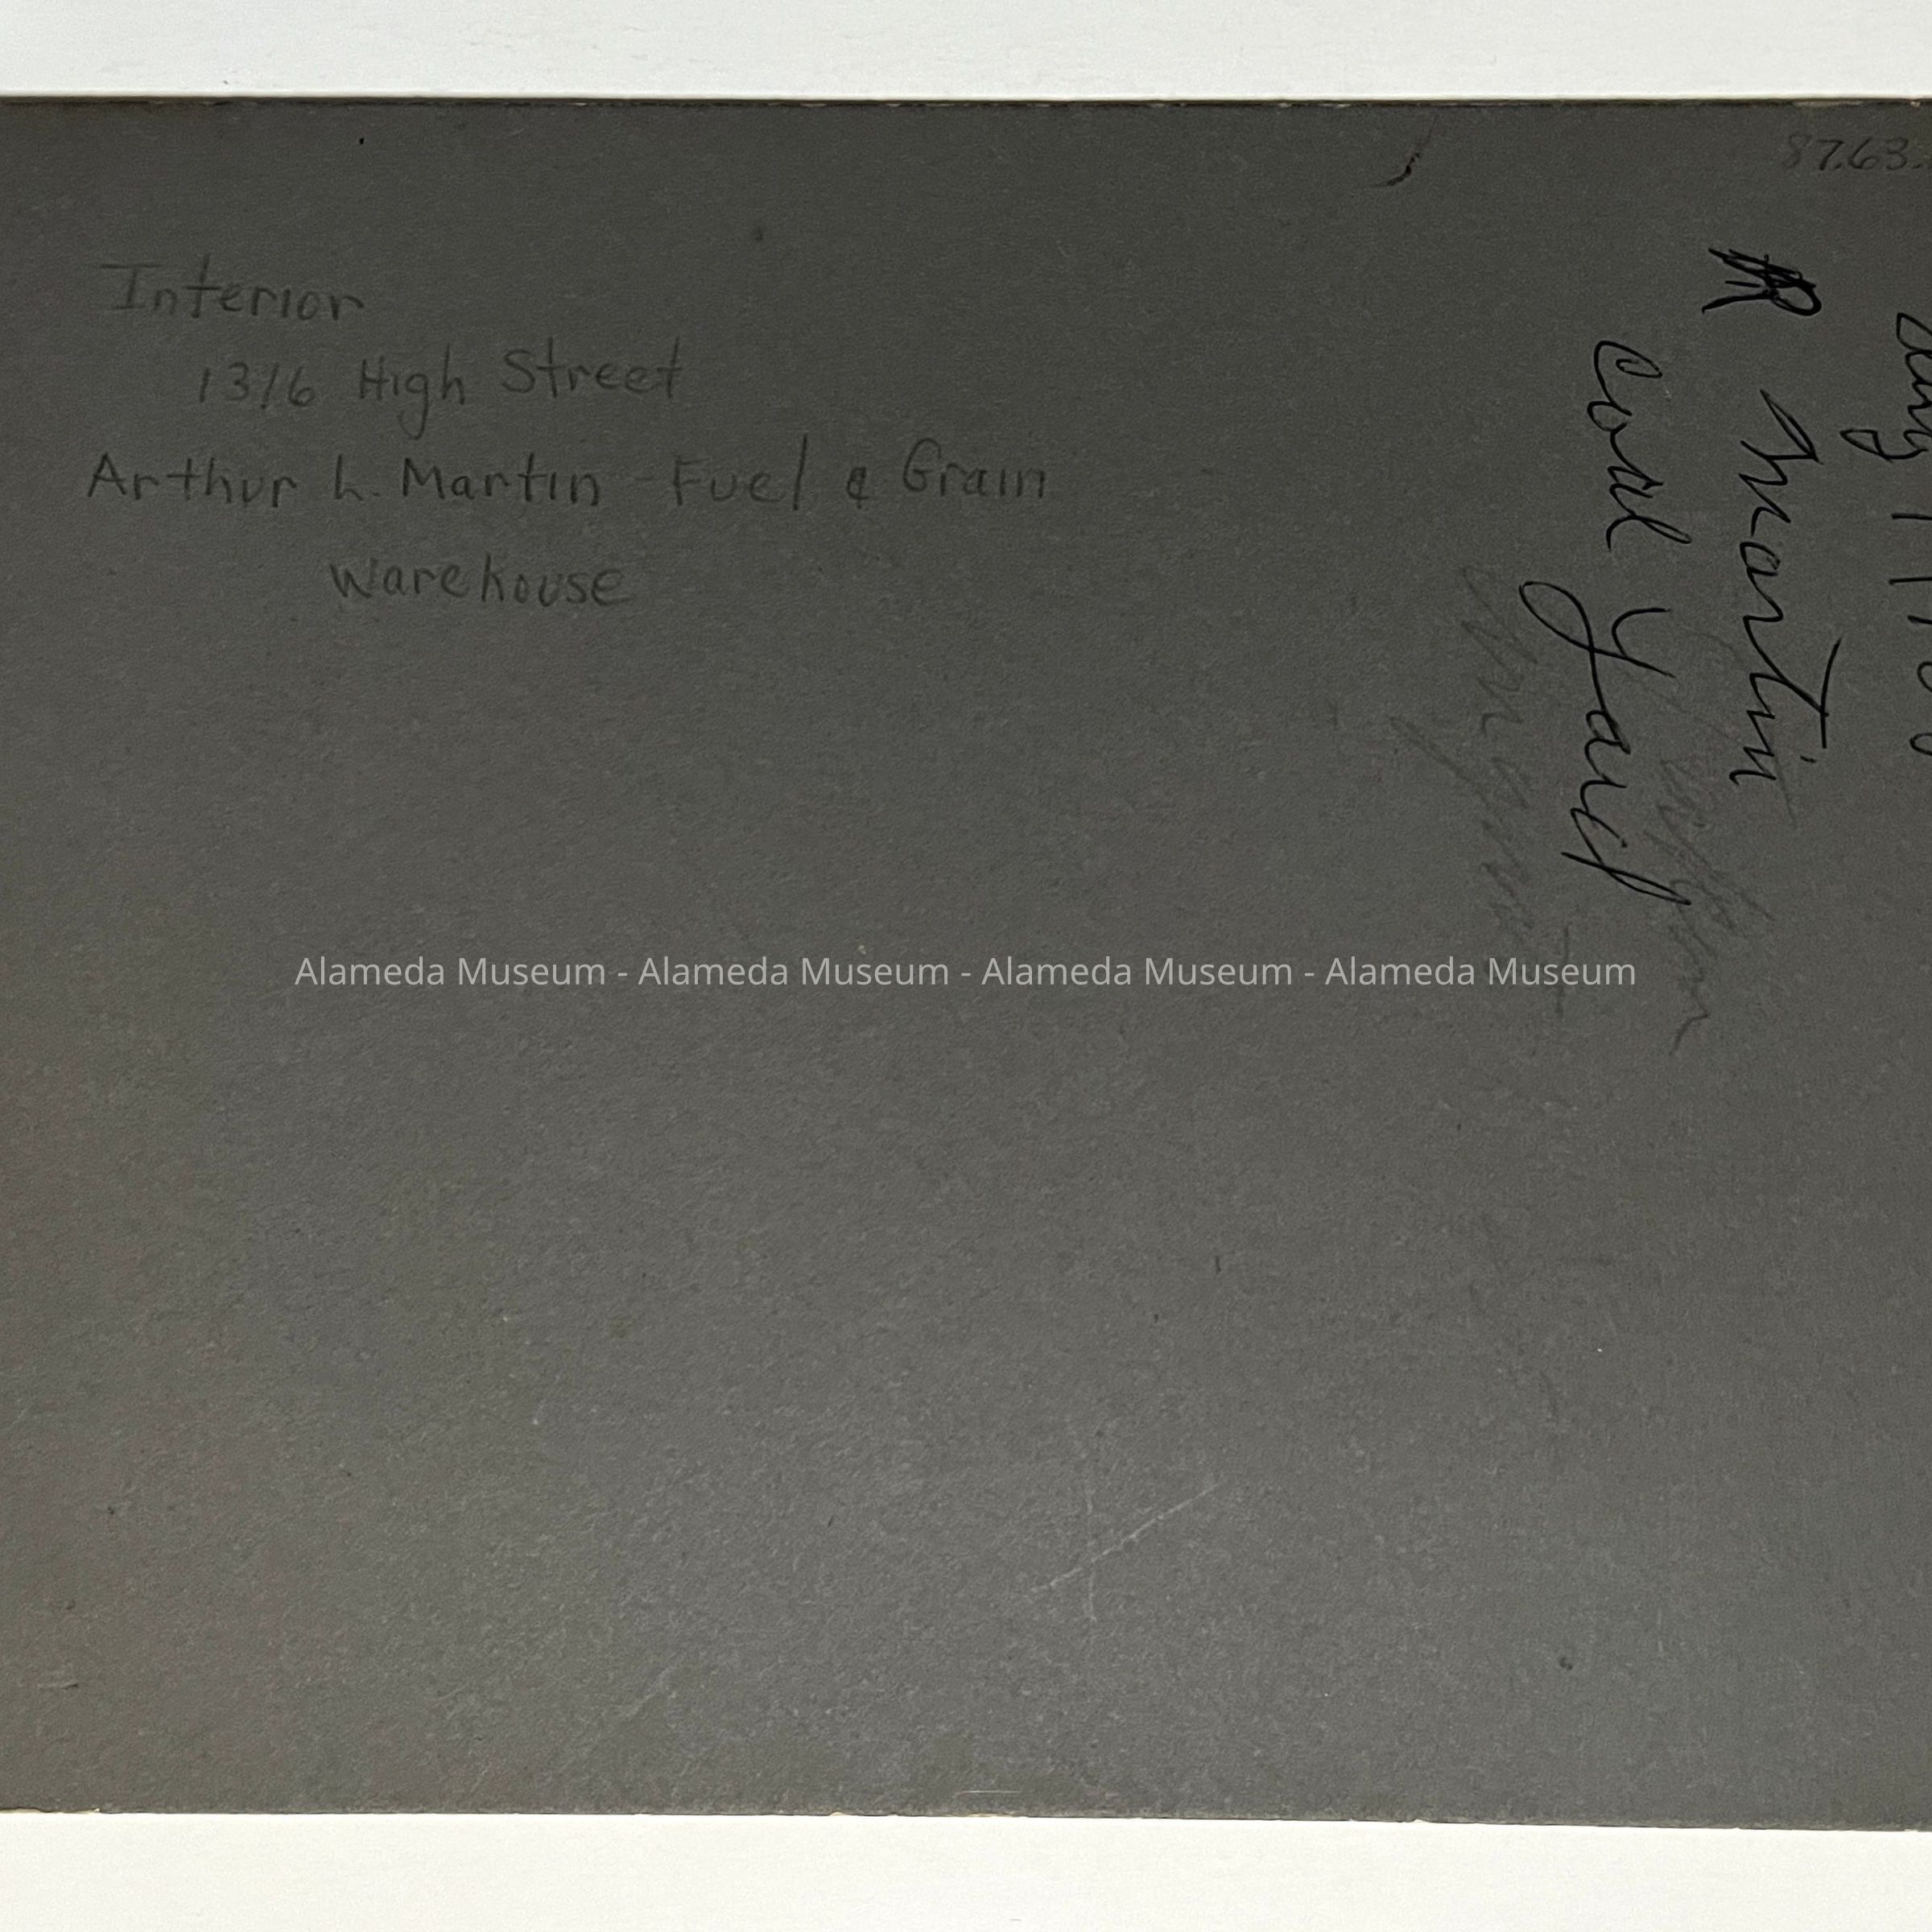 Interior
1316 High Street
Arthur L. Martin - Fuel & Grain
Warehouse
87.63.
Martin
Coal Yard
Alameda Museum - Alameda Museum - Alameda Museum - Alameda Museum